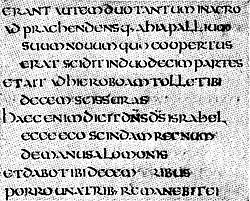 ERANT AUTEM DUO TANTUM IN AGRO
ADPRAEHENDENSQ· AHIA PALLIUM
SUUM NOUUM QUO COOPERTUS
ERAT SCIDIT IN DUODECIM PARTES
ET AIT AD HIEROBOAM TOLLE TIBI
DECEM SCISSURAS
HAEC ENIM DICIT DNS DS ISRAHEL
ECCE EGO SCINDAM REGNUM
DE MANU SALOMONIS
ET DABO TIBI DECEM TRIBUS
PORRO UNA TRIB· REMANEBIT EI